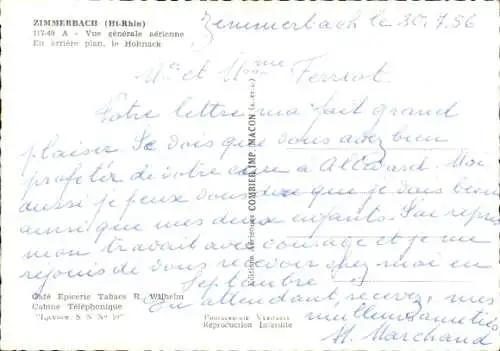 ZIMMERBACH (Ht-Rhin)
117-49 A - Vue générale aérienne
En arrière plan, le Hohnack
Zimmerbach le 30.7.56
Mr et Mme Ferriot.
Votre lettre m'a fait grand
plaisir Je vois que vous avez bien
profiter de votre cure à Allevard. Moi
aussi je peux vous dire que je vais bien
ainsi que mes deux enfants. J'ai repris
mon travail avec courage et je me
rejouis de vous recevoir chez moi en
Septembre
En attendant, recevez, mes
meilleurs amitiés
M. Marchand
Editions Aériennes COMBIER IMP. MACON (S.-et-L.)
Café Epicerie Tabacs R. Wilhelm
Cabine Téléphonique
Reproduction Interdite